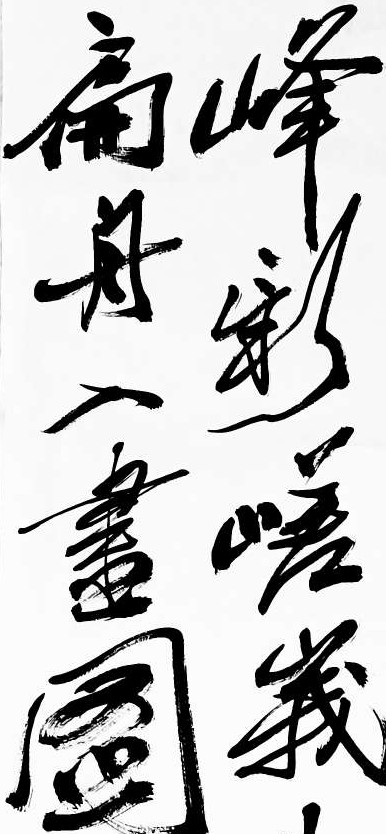 峰嵯峨
扁舟入畫圖